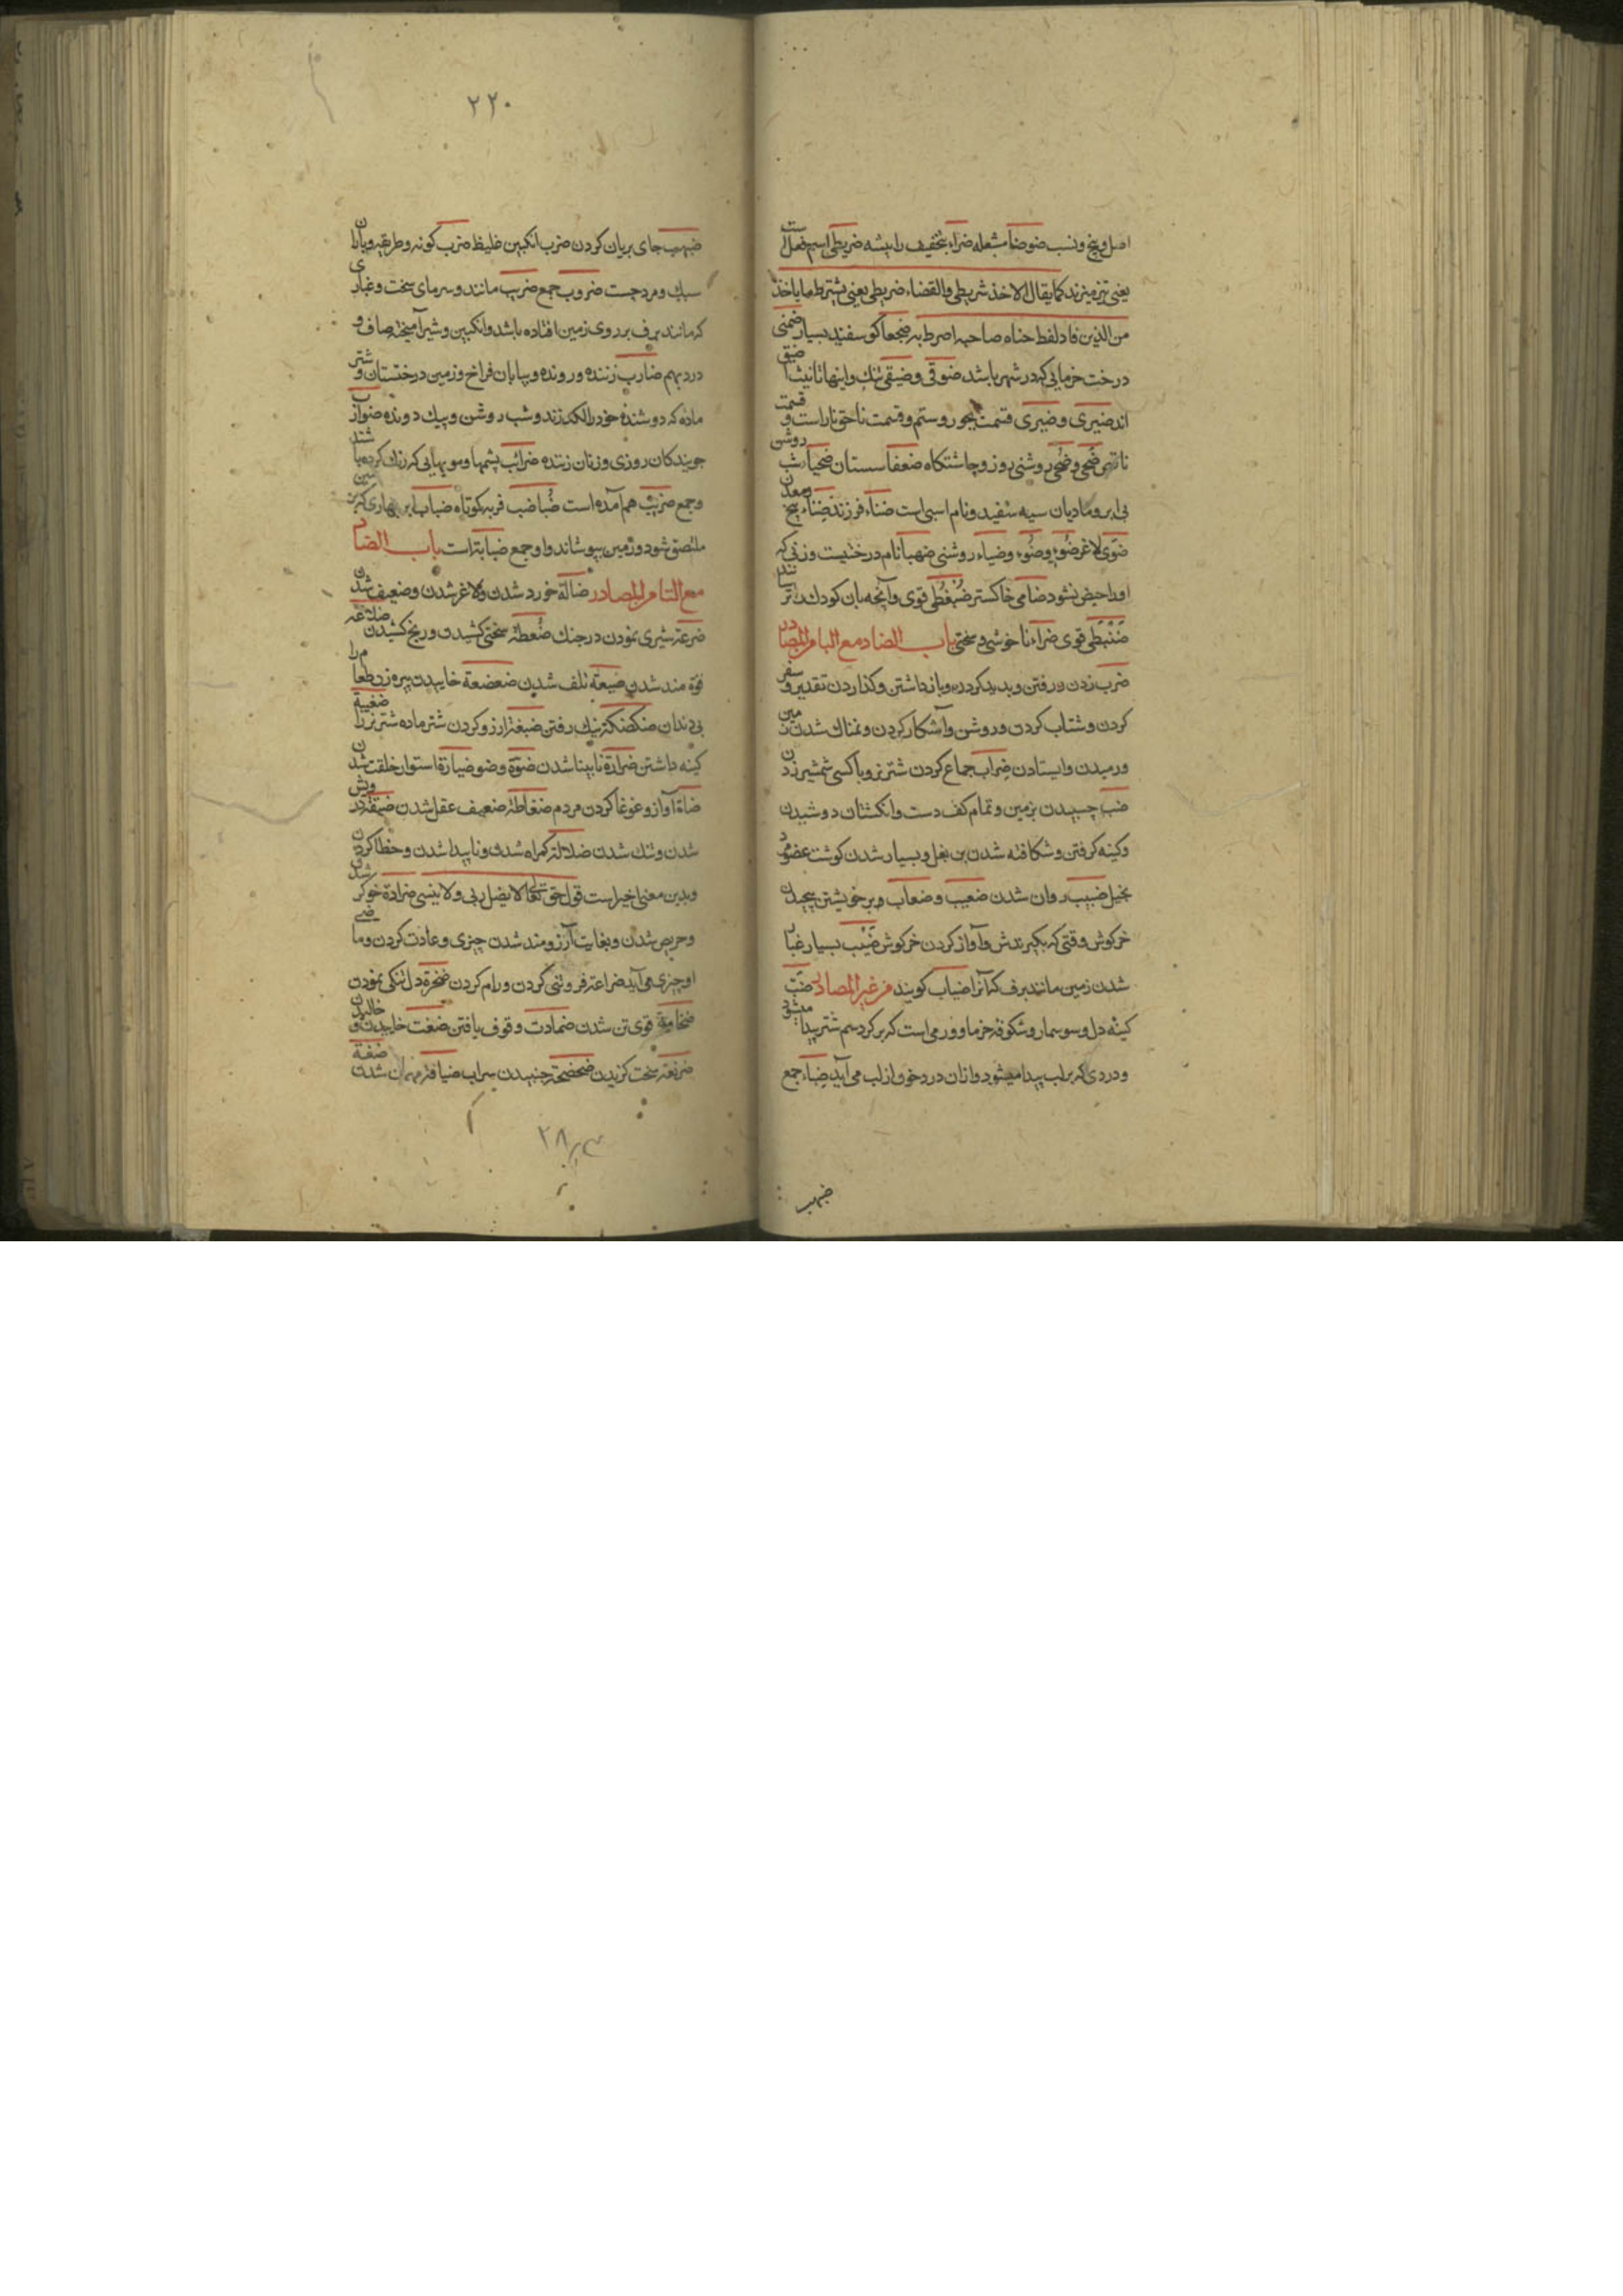 اصل و بیخ و نسب ضوضا مشعله ضراء بتخفیف را بیشه ضریطی اسم فعل است
یعنی تیز میزند کما یقال الاخذ شریطی والقضاء ضریطی یعنی یشترط ما یاخذ
من الذین فاد لفظ صاحبه اضرط به ضجعا کوسفند بسیار ضمنی
درخت خرمایی که در شهر باشد ضوقی و ضیقی تنک و اینها تانیث اضیق
اند ضیزی و ضیزی قسمت بجور و ستم و قسمت ناحق ناراست و قسمت
ضحی و ضحی روشنی روز و چاشتکاه ضعفا سستان ضحیا شب روشن
بی ابر و مادیان سیه سفید و نام اسبی است ضناء فرزند ضناء بیخ و معدن
ضوی لاغر ضوء و ضوء و ضیاء روشنی ضهیا نام درختیست و زنی که
او را حیض نشود ضامی خاکستر ضبغطی قوی و آنچه بان کودک را ترسانند
ضبنطی قوی ضراء ناخوشی و سختی باب الضاد مع البا من المصادر
ضرب زدن و رفتن و پدید کردن و بازداشتن و کذاردن تقدیر و سفر
کردن و شتاب کردن و روشن و آشکار کردن و نمناک شدن زمین
و رمیدن و ایستادن ضراب جماع کردن شتر نر و با کسی شمشیر زدن
ضب چسبیدن بزمین و تمام کف دست و انکشتان دوشیدن
و کینه کرفتن و شکافته شدن بن بغل و بسیار شدن کوشت عضو
ضبیب روان شدن ضغیب و ضغاب و بر خویشتن پیچیدن
خرکوش وقتی که بکیرندش و آواز کردن خرکوش ضبب بسیار غبار
شدن زمین مانند برف که آنرا ضباب کویند من غیر المصادر ضب
کینه دل و سوسمار و شکوفه خرما و ورمی است که بر کرد سم شتر پیدا میشود
و دردی که بر لب پیدا میشود و ازان درد خون از لب می آید ضباء جمع
ضهب
۲۲۰
ضهب جای بریان کردن ضرب انکبین غلیظ ضرب کونه و طریقه و باران
سبک و مرد چست ضروب جمع ضریب مانند و سرمای سخت و غباری
که مانند برف بر روی زمین افتاده باشد و انکبین و شیر آمیخته صاف و
درد بهم ضارب زننده و رونده و بیابان فراخ و زمین درختستان و شتر
ماده که دوشنده خود را لکد زند و شب روشن و پیک دونده ضوارب
جویندکان روزی و زنان زننده ضرائب پشمها و مویهایی که زنان کرده باشند
و جمع ضریب هم آمده است ضباضب فربه کوتاه ضباب ابر بهاری که بزمین
ملتصق شود و زمین بپوشاند و او جمع ضبابة است باب الضاد
مع التا من المصادر ضالة خورد شدن و لاغر شدن و ضعیف شدن
ضرعة شیری نمودن در جنک ضغطة سختی کشیدن و رنج کشیدن ضلاعة
قوة مند شدن ضیعة تلف شدن ضعضعة خاییدن پیره زن طعام را
بی دندان ضکضکة نیک رفتن ضبعة ارزو کردن شتر ماده شتر نر را ضغینة
کینه داشتن ضرارة نابینا شدن ضوة و ضوضیا ضبارة استوار خلقت شدن
ضاة آواز و غوغا کردن مردم ضغاطة ضعیف عقل شدن ضیقة درویش
شدن و تنک شدن ضلالة کمراه شدن و ناپیدا شدن و خطا کردن
و بدین معنی اخیر است قول حق تعالی لا یضل ربی و لا ینسی ضراوة خوکر شدن
و حریص شدن و بغایت آرزومند شدن چیزی و عادت کردن و ما
او چیزی می آید ضراعة فروتنی کردن و رام کردن ضجرة دل تنکی نمودن
ضخامة قوی تن شدن ضمادت وقوف یافتن ضغت خاییدن
ضرغة سخت کزیدن ضحضحة جنبیدن سراب ضیافة مهمان شدن